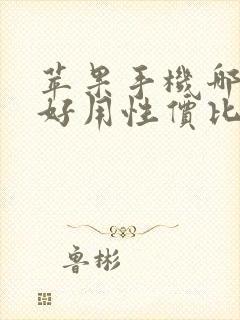 苹果手機哪
好用性價比
魯彬